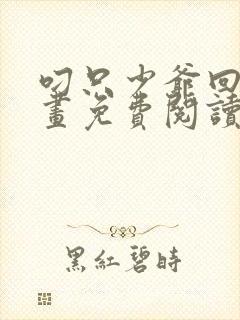 叼只少爺回
畫免費閱讀
黑紅碧時